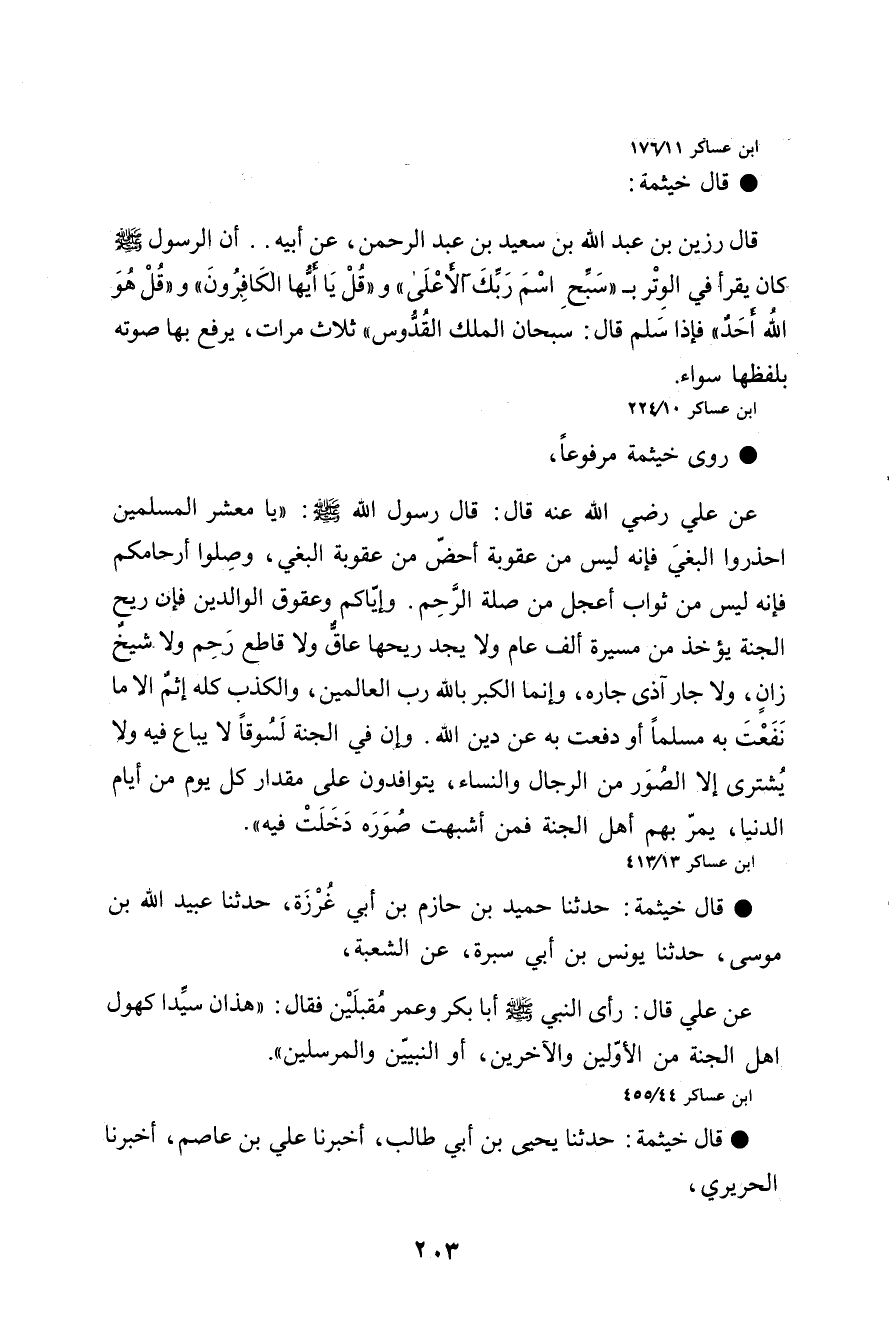 ابن عساكر ١٧٦/١١
● قال خيثمة:
قال رزين بن عبد الله بن سعيد بن عبد الرحمن، عن أبيه.. أن الرسول ﷺ
كان يقرأ في الوِتْر بـ «سَبِّحِ اسْمَ رَبِّكَ الأَعْلَىٰ» و «قُلْ يَا أَيُّها الكَافِرُونَ» و «قُلْ هُوَ
اللهُ أَحَدٌ» فإذا سَلم قال: سبحان الملك القُدُّوس» ثلاث مرات، يرفع بها صوته
بلفظها سواء.
ابن عساكر ٢٢٤/١٠
● روى خيثمة مرفوعاً،
عن علي رضي الله عنه قال: قال رسول الله ﷺ: «يا معشر المسلمين
احذروا البغيَ فإنه ليس من عقوبة أحضّ من عقوبة البغي، وصِلوا أرحامكم
فإنه ليس من ثواب أعجل من صلة الرَّحِم. وإيّاكم وعقوق الوالدين فإن ريح
الجنة يؤخذ من مسيرة ألف عام ولا يجد ريحها عاقٌّ ولا قاطع رَحِم ولا شيخٌ
زانٍ، ولا جار آذى جاره، وإنما الكبر بالله رب العالمين، والكذب كله إثمٌ الا ما
نَفَعْتَ به مسلماً أو دفعت به عن دين الله. وإن في الجنة لَسُوقاً لا يباع فيه ولا
يُشترى إلا الصُوَر من الرجال والنساء، يتوافدون على مقدار كل يوم من أيام
الدنيا، يمرّ بهم أهل الجنة فمن أشبهت صُوَرَه دَخَلَتْ فيه».
ابن عساكر ٤١٣/١٣
● قال خيثمة: حدثنا حميد بن حازم بن أبي غُرْزَة، حدثنا عبيد الله بن
موسى، حدثنا يونس بن أبي سبرة، عن الشعبة،
عن علي قال: رأى النبي ﷺ أبا بكر وعمر مُقبلَيْن فقال: «هذان سيِّدا كهول
اهل الجنة من الأوّلين والآخرين، أو النبييّن والمرسلين».
ابن عساكر ٤٥٥/٤٤
● قال خيثمة: حدثنا يحيى بن أبي طالب، أخبرنا علي بن عاصم، أخبرنا
الحريري،
٢٠٣